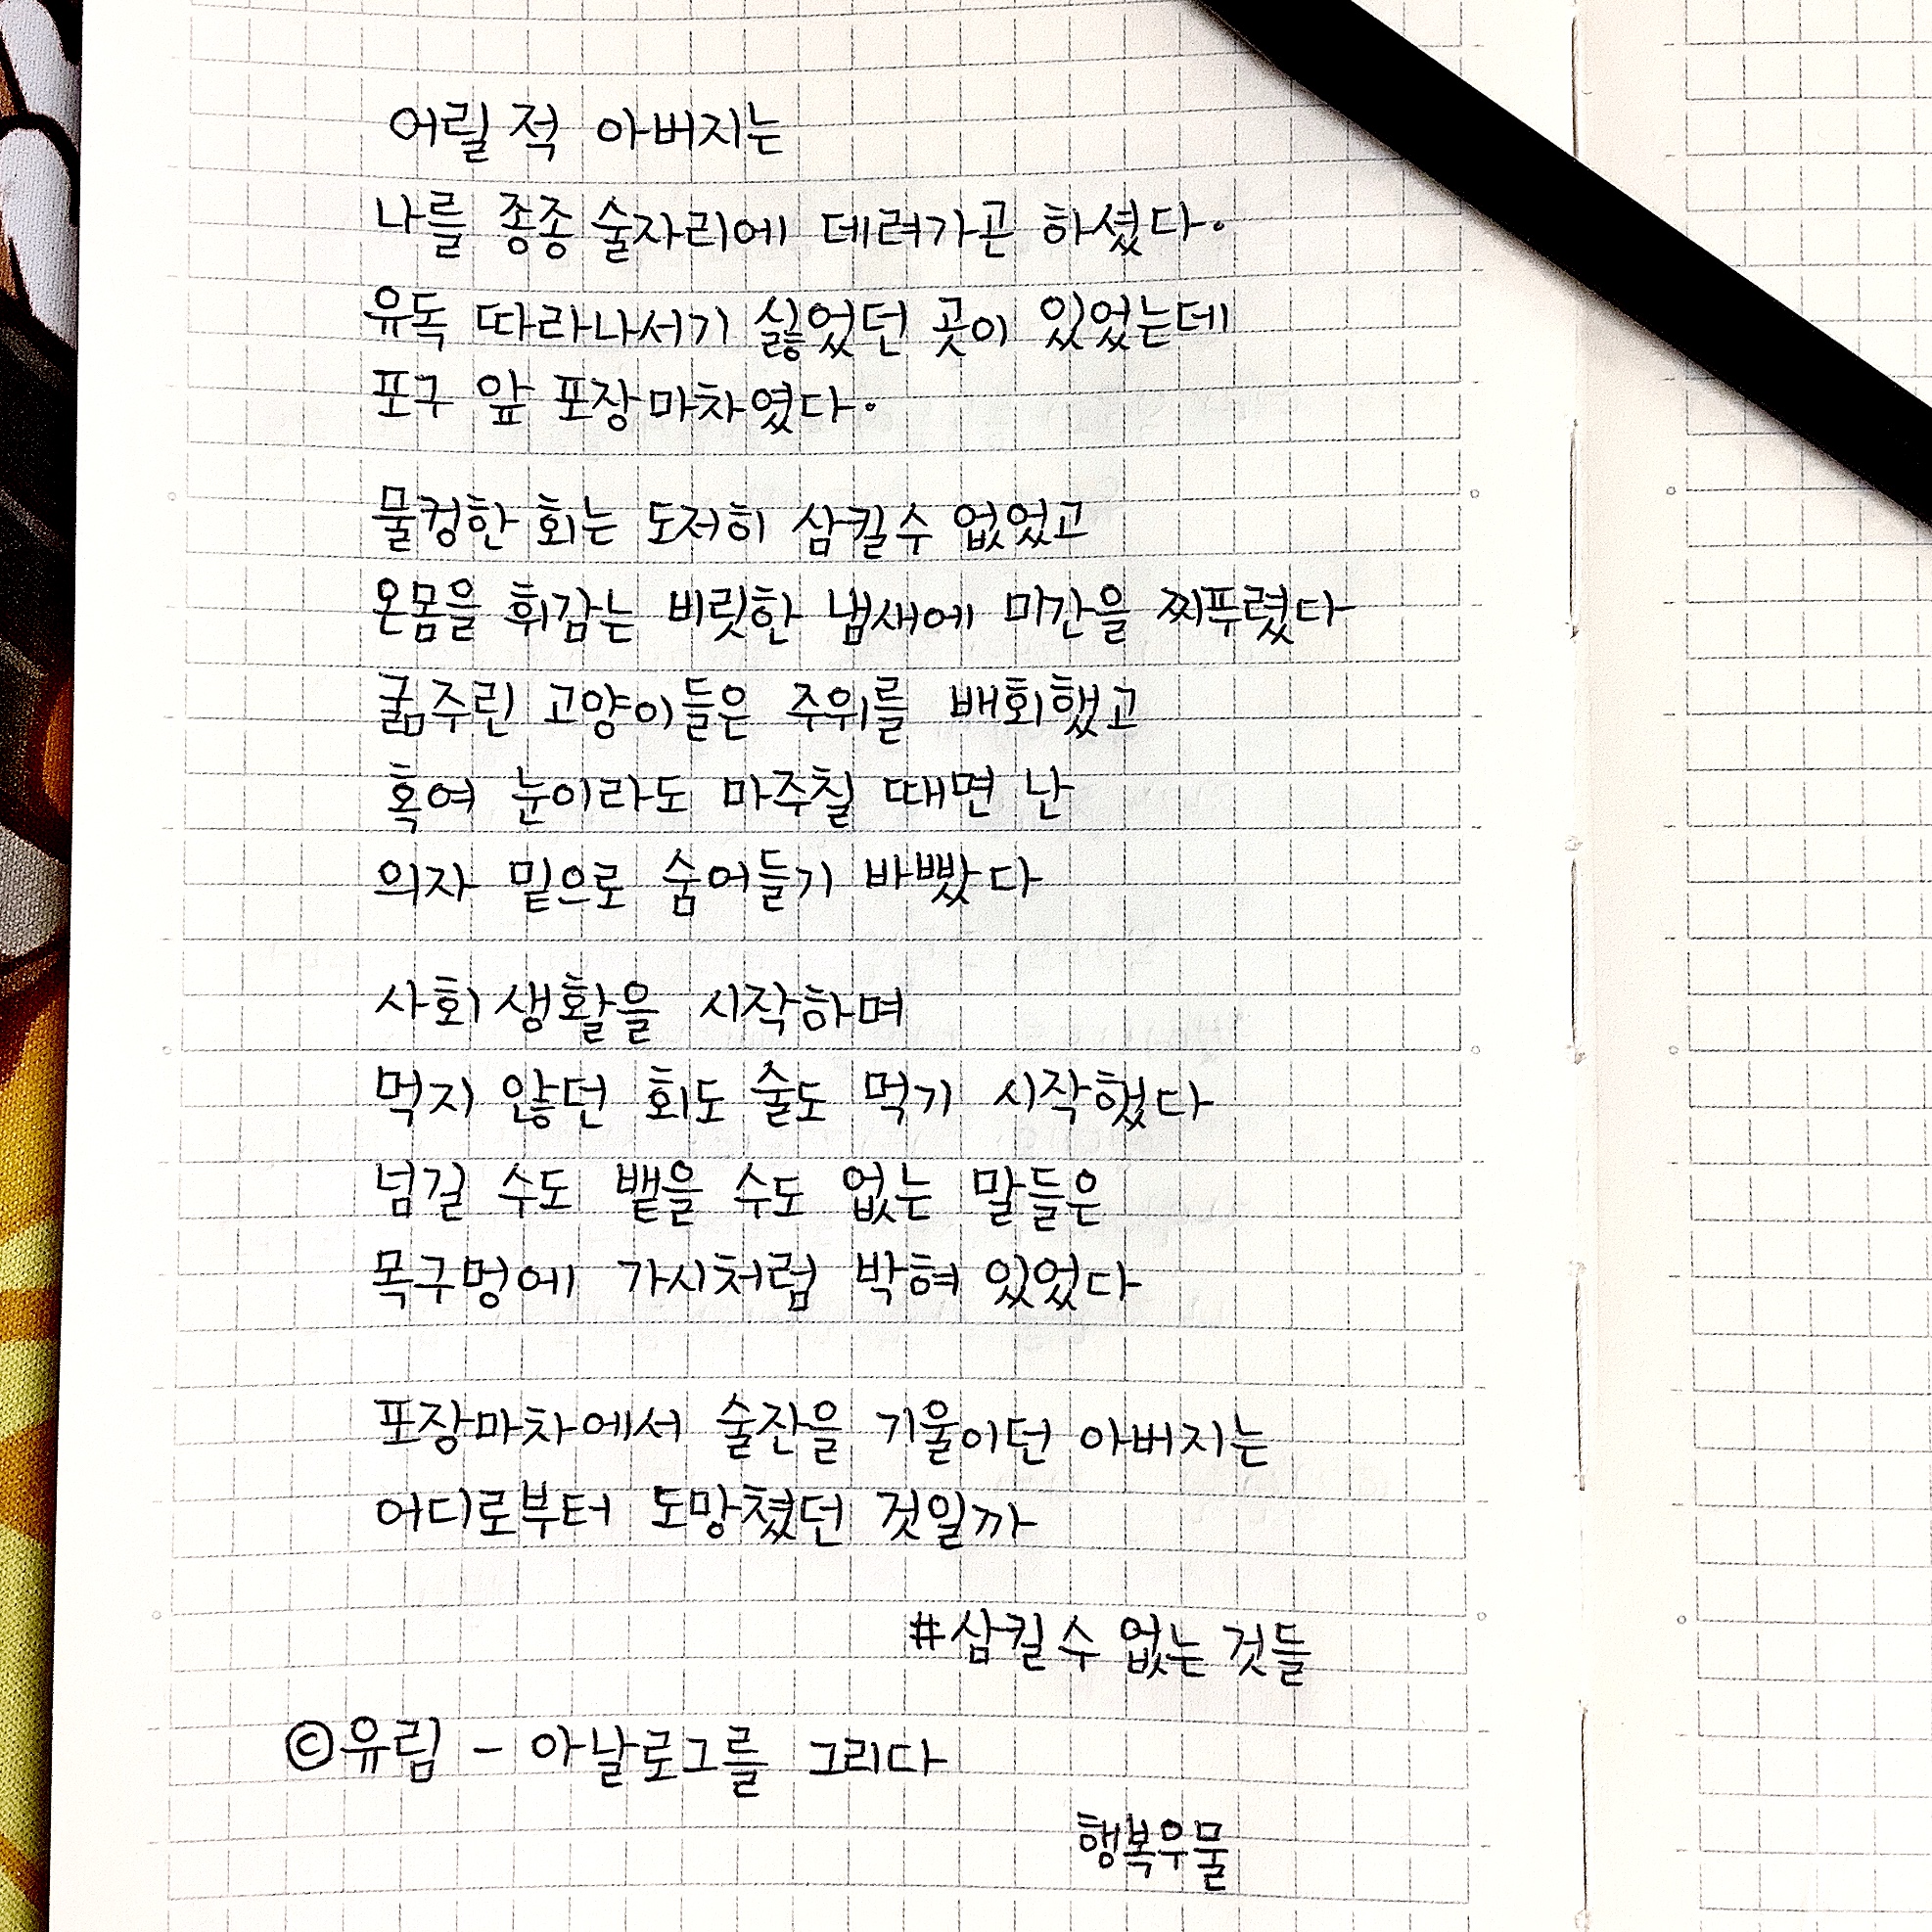 어릴 적 아버지는
나를 종종 술자리에 데려가곤 하셨다.
유독 따라나서기 싫었던 곳이 있었는데
포구 앞 포장마차였다.
물컹한 회는 도저히 삼킬수 없었고
온몸을 휘감는 비릿한 냄새에 미간을 찌푸렸다
굶주린 고양이들은 주위를 배회했고
혹여 눈이라도 마주칠 때면 난
의자 밑으로 숨어들기 바빴다
사회생활을 시작하며
먹지 않던 회도 술도 먹기 시작했다
넘길 수도 뱉을 수도 없는 말들은
목구멍에 가시처럼 박혀 있었다
포장마차에서 술잔을 기울이던 아버지는
어디로부터 도망쳤던 것일까
#삼킬수 없는 것들
©유림 - 아날로그를 그리다
행복우물